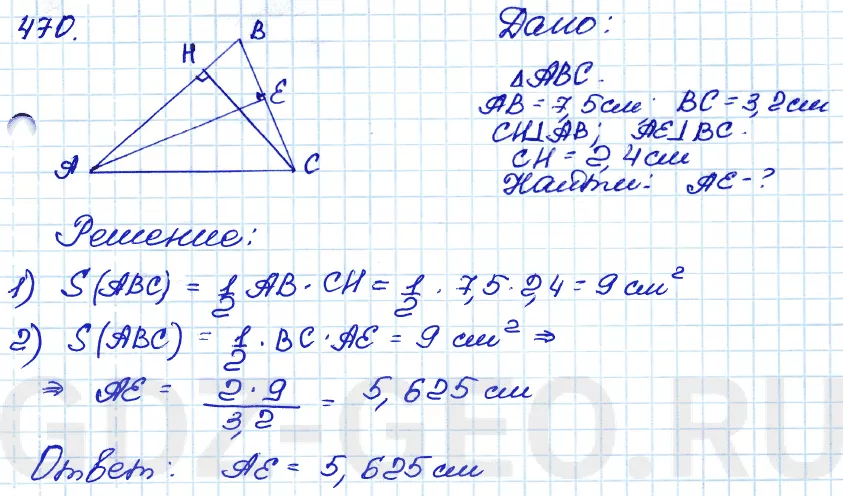 470.
Дано:
B
H
E
A
C
△ABC.
AB = 7,5 см; BC = 3,2 см
CH⊥AB; AE⊥BC.
CH = 2,4 см
Найти: AE - ?
Решение:
1) S(ABC) = 1/2 AB · CH = 1/2 · 7,5 · 2,4 = 9 см²
2) S(ABC) = 1/2 · BC · AE = 9 см² ⇒
⇒ AE = 2·9/3,2 = 5,625 см
Ответ: AE = 5,625 см
GDZ-GEO.RU